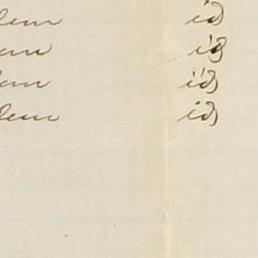 dem id
dem id
dem id
dem id